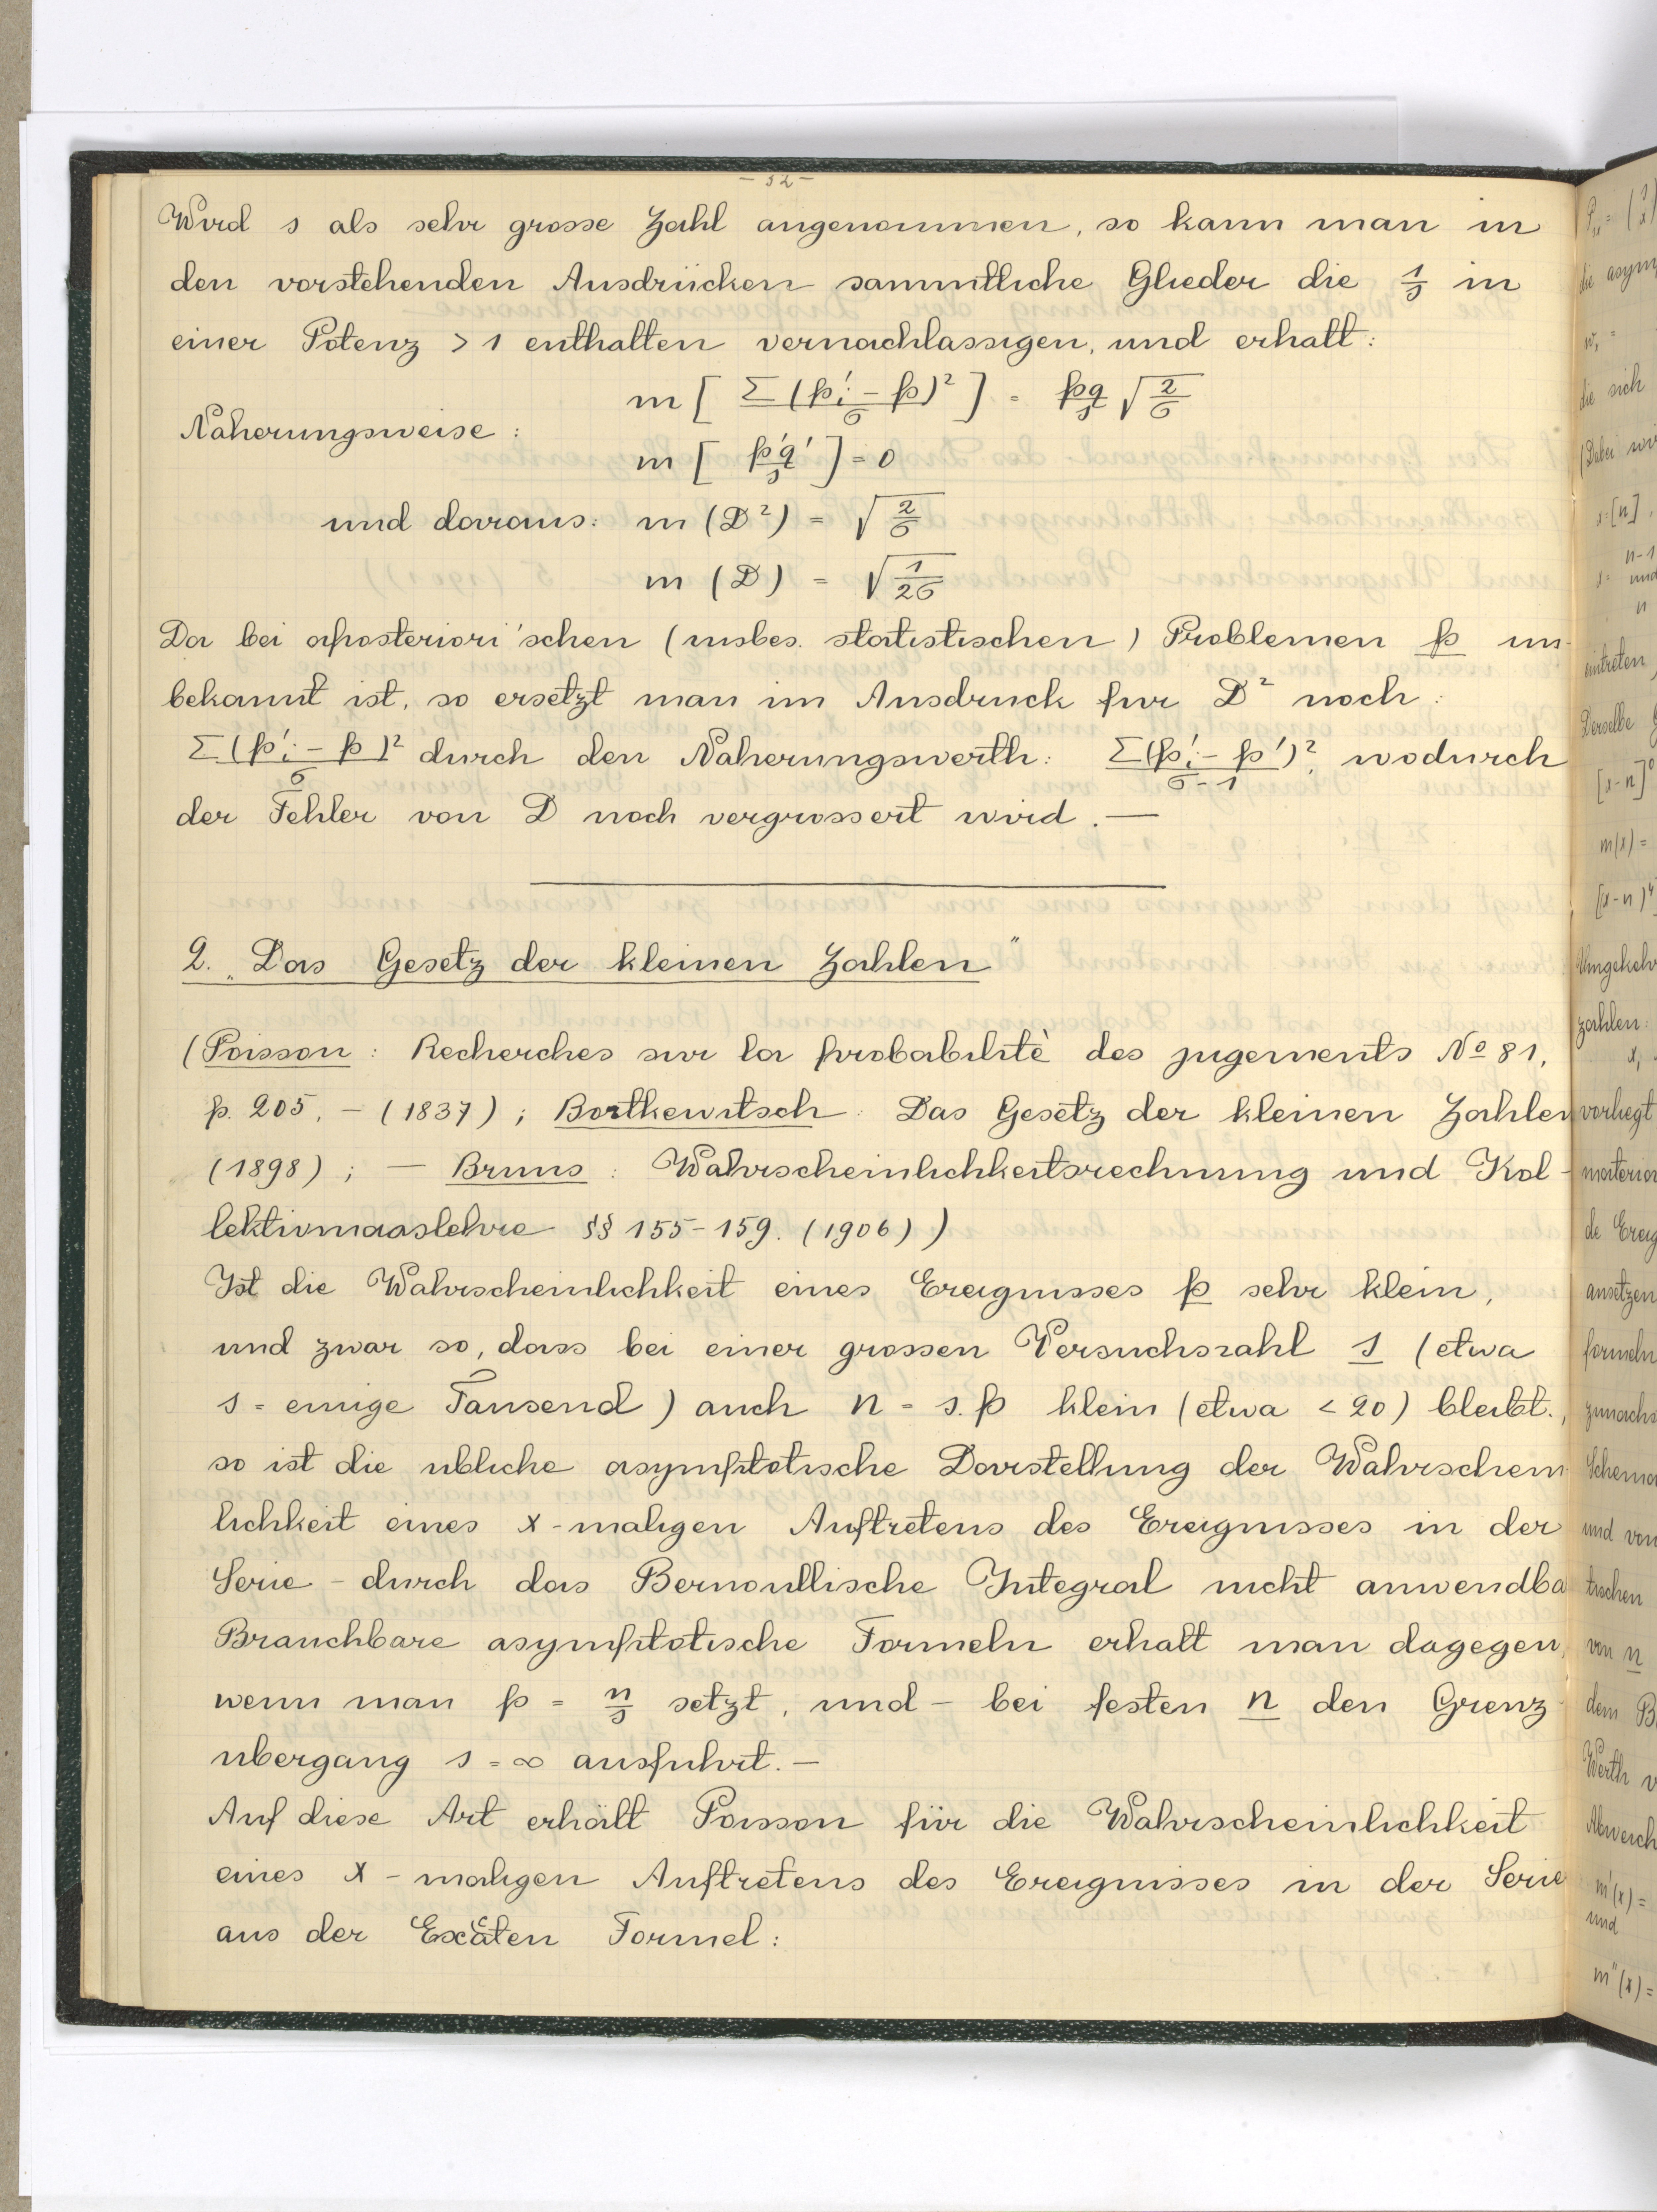 - 52 -
Wird s als sehr grosse Zahl angenommen, so kann man in
den vorstehenden Ausdrücken sammtliche Glieder die 1/s in
einer Potenz > 1 enthalten vernachlassigen, und erhalt:
m [ Σ(p'i - p)²/σ ] = pq/s √2/σ
Naherungsweise:
m [ p'q'/s ] = 0
und daraus: m (D²) = √2/σ
m (D) = √1/2σ
Da bei aposteriori'schen (insbes. statistischen) Problemen p un-
bekannt ist, so ersetzt man im Ausdruck fur D² noch:
Σ(p'i - p)²/σ durch den Naherungswerth: Σ(p'i - p')²/σ-1, wodurch
der Fehler von D noch vergrossert wird. —
2. „Das Gesetz der kleinen Zahlen"
(Poisson: Recherches sur la probabilitè des jugements No 81,
p. 205, - (1837); Bortkewitsch: Das Gesetz der kleinen Zahlen
(1898); — Bruns: Wahrscheinlichkeitsrechnung und Kol-
lektivmaaslehre §§ 155-159. (1906))
Ist die Wahrscheinlichkeit eines Ereignisses p sehr klein,
und zwar so, dass bei einer grossen Versuchszahl s (etwa
s = einige Tausend) auch n = s.p klein (etwa < 20) bleibt,
so ist die ubliche asymptotische Darstellung der Wahrschein
lichkeit eines x-maligen Auftretens des Ereignisses in der
Serie - durch das Bernoullische Integral nicht anwendba
Brauchbare asymptotische Formeln erhalt man dagegen,
wenn man p = n/s setzt, und - bei festen n den Grenz-
ubergang s = ∞ ausfuhrt. —
Auf diese Art erhält Poisson für die Wahrscheinlichkeit
eines x-maligen Auftretens des Ereignisses in der Serie
aus der Excäten Formel:
die asym
die sich
(Dabei wi
s=[n],
n-1
und
n
eintreten,
Derselbe
m(x) =
Umgekehr
zahlen:
vorliegt
materia
de Ereig
ansetzen
formeln
zunachs
Schema
und von
tischen
von n
dem B
Werth v
Abweich
m'(x) =
und
m"(x) =